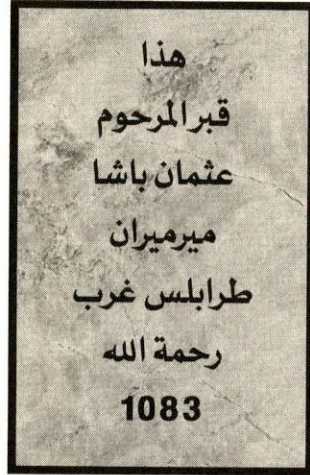 هذا
قبر المرحوم
عثمان باشا
ميرميران
طرابلس غرب
رحمة الله
1083